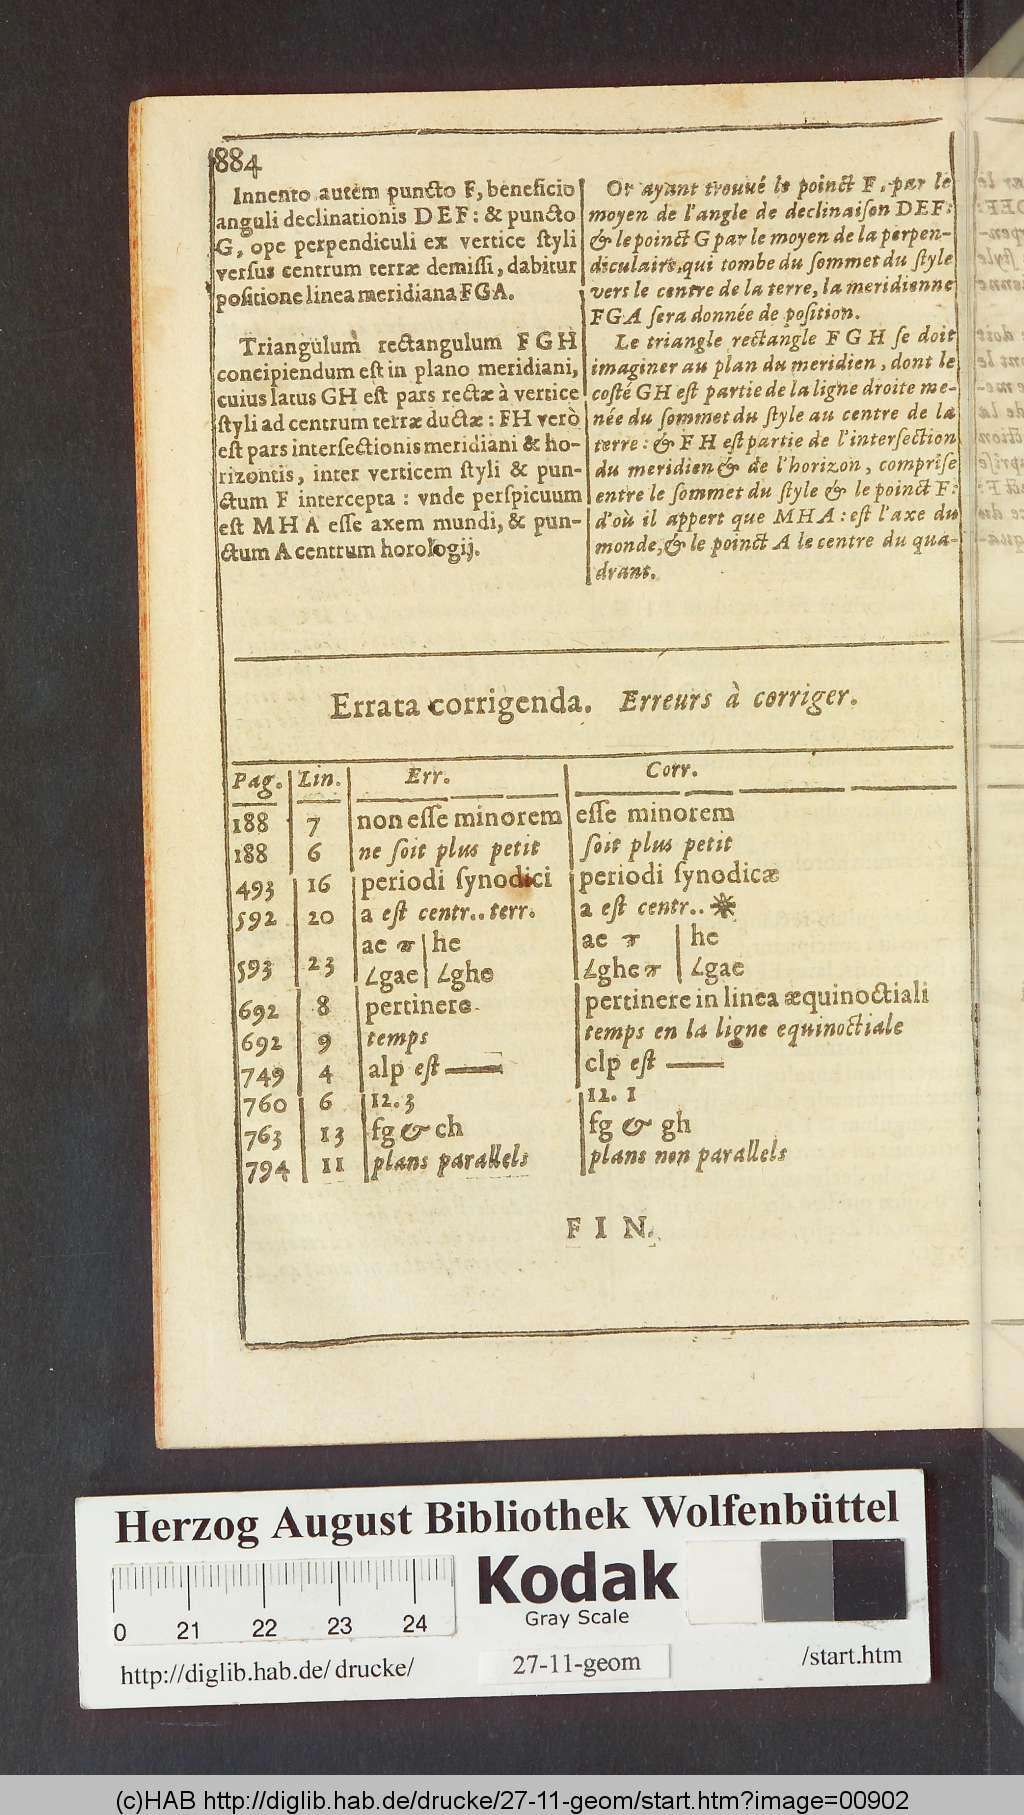 884
Innento autem puncto F, beneficio
anguli declinationis DEF: & puncto
G, ope perpendiculi ex vertice ſtyli
verſus centrum terræ demiſſi, dabitur
poſitione linea meridiana FGA.
Triangulum rectangulum FGH
concipiendum eſt in plano meridiani,
cuius latus GH eſt pars rectæ à vertice
ſtyli ad centrum terræ ductæ: FH verò
eſt pars interſectionis meridiani & ho-
rizontis, inter verticem ſtyli & pun-
ctum F intercepta: vnde perſpicuum
eſt MHA eſſe axem mundi, & pun-
ctum A centrum horologij.
Or ayant trouué le poinct F, par le
moyen de l'angle de declinaiſon DEF:
& le poinct G par le moyen de la perpen-
diculaire, qui tombe du ſommet du ſtyle
vers le centre de la terre, la meridienne
FGA ſera donnée de poſition.
Le triangle rectangle FGH ſe doit
imaginer au plan du meridien, dont le
coſté GH eſt partie de la ligne droite me-
née du ſommet du ſtyle au centre de la
terre: & FH eſt partie de l'interſection
du meridien & de l'horizon, compriſe
entre le ſommet du ſtyle & le poinct F:
d'où il appert que MHA: eſt l'axe du
monde, & le poinct A le centre du qua-
drant.
Errata corrigenda. Erreurs à corriger.
Pag. Lin. Err. Corr.
188 7 non eſſe minorem eſſe minorem
188 6 ne ſoit plus petit ſoit plus petit
493 16 periodi ſynodici periodi ſynodicæ
592 20 a eſt centr.. terr. a eſt centr.. ☀
ae π | he ae π | he
593 23 ∠gae | ∠ghe ∠ghe π | ∠gae
692 8 pertinere pertinere in linea æquinoctiali
692 9 temps temps en la ligne equinoctiale
749 4 alp eſt —— clp eſt ——
760 6 12. 3 12. 1
763 13 fg & ch fg & gh
794 11 plans parallels plans non parallels
FIN.
Herzog August Bibliothek Wolfenbüttel
0 21 22 23 24
Kodak
Gray Scale
http://diglib.hab.de/drucke/ 27-11-geom /start.htm
(c)HAB http://diglib.hab.de/drucke/27-11-geom/start.htm?image=00902